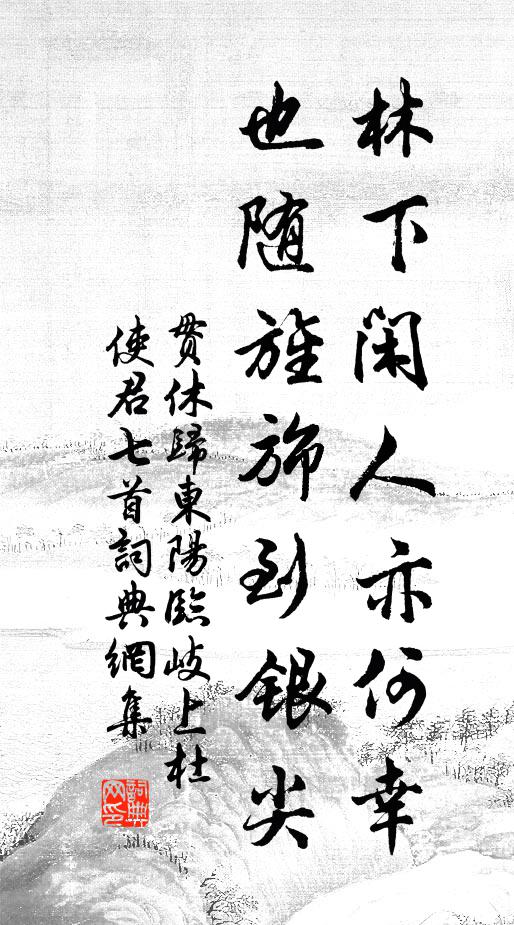 林下閑人亦何幸
也随旌斾到銀尖
貫休歸東陽臨岐上杜
使君七首詞典網集
詞典网印